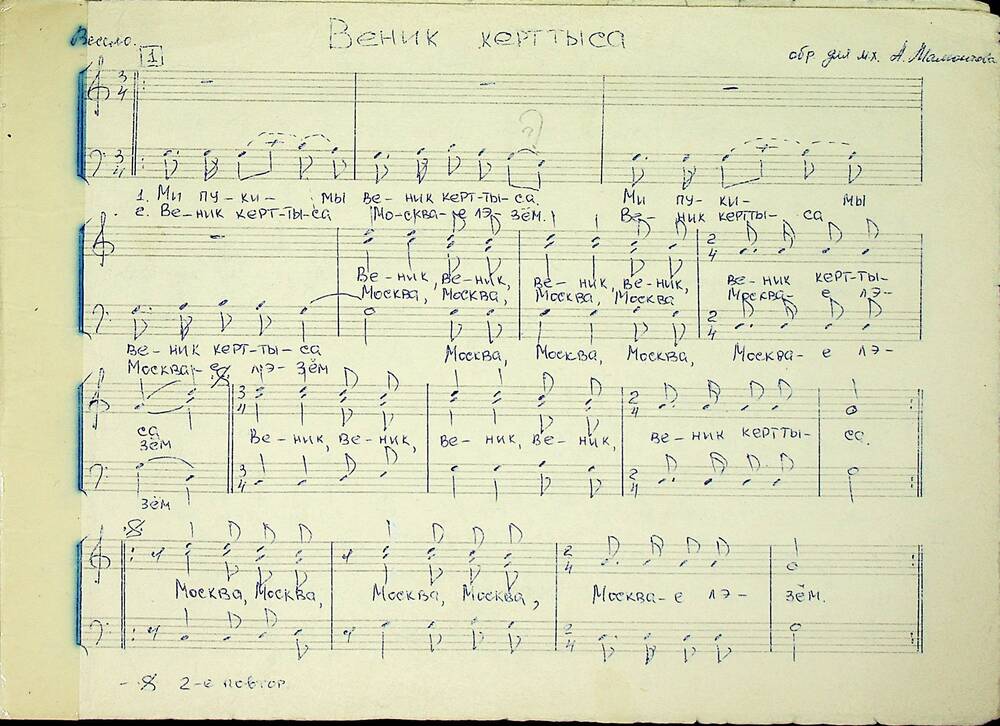 Веник керттыса
Весело.
обр. для м.х. А. Мамонтова
1
3 4
1. Ми пу-ки- мы ве- ник керт-ты-са. Ми пу- ки- мы
2. Ве-ник керт-ты-са Мо-сква-е лэ- зём. Ве- ник кертты- са
Ве-ник, ве-ник, ве-ник, ве-ник, ве-ник керт-ты-
Москва, Москва, Москва, Москва Москва- е лэ-
2 4
ве- ник керт-ты-са Москва, Москва, Москва, Москва- е лэ-
Москва-е лэ- зём
са Ве-ник, ве-ник, ве- ник, ве- ник, ве-ник кертты- са.
зём
3 4 2 4
зём
Москва, Москва, Москва, Москва, Москва-е лэ- зём.
2 4
2-е повтор.